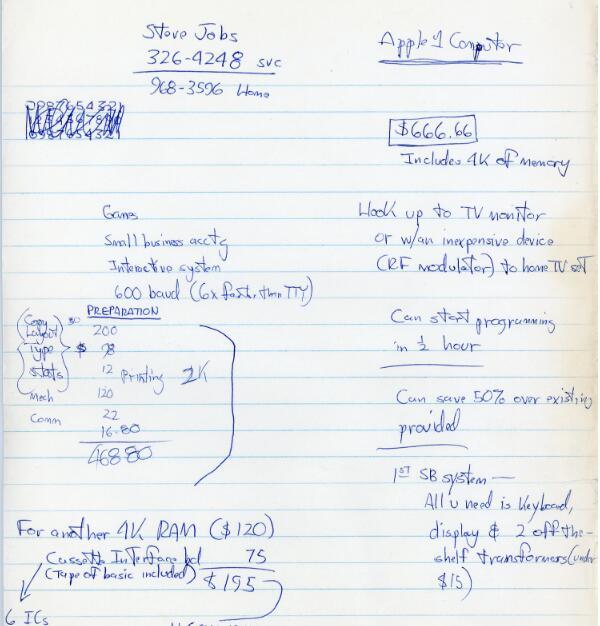 Steve Jobs
326-4248 svc
968-3596 Home
Apple 1 Computor
$666.66
Includes 4K of memory
Games
Small business acctg
Interactive system
600 baud (6x faster than TTY)
Hook up to TV monitor
or w/an inexpensive device
(RF modulator) to home TV set
Can start programming
in ½ hour
Can save 50% over existing
provided
1ST SB system —
All u need is Keyboard,
display & 2 off-the-
shelf transformers (under
$15)
PREPARATION
Copy
Layout 200
Type $ 98
Stats 12
Printing 2K
Mech 120
Comm 22
16.80
468.80
For another 4K RAM ($120)
Cassette Interface bd 75
(Tape of basic included) $195
6 ICs